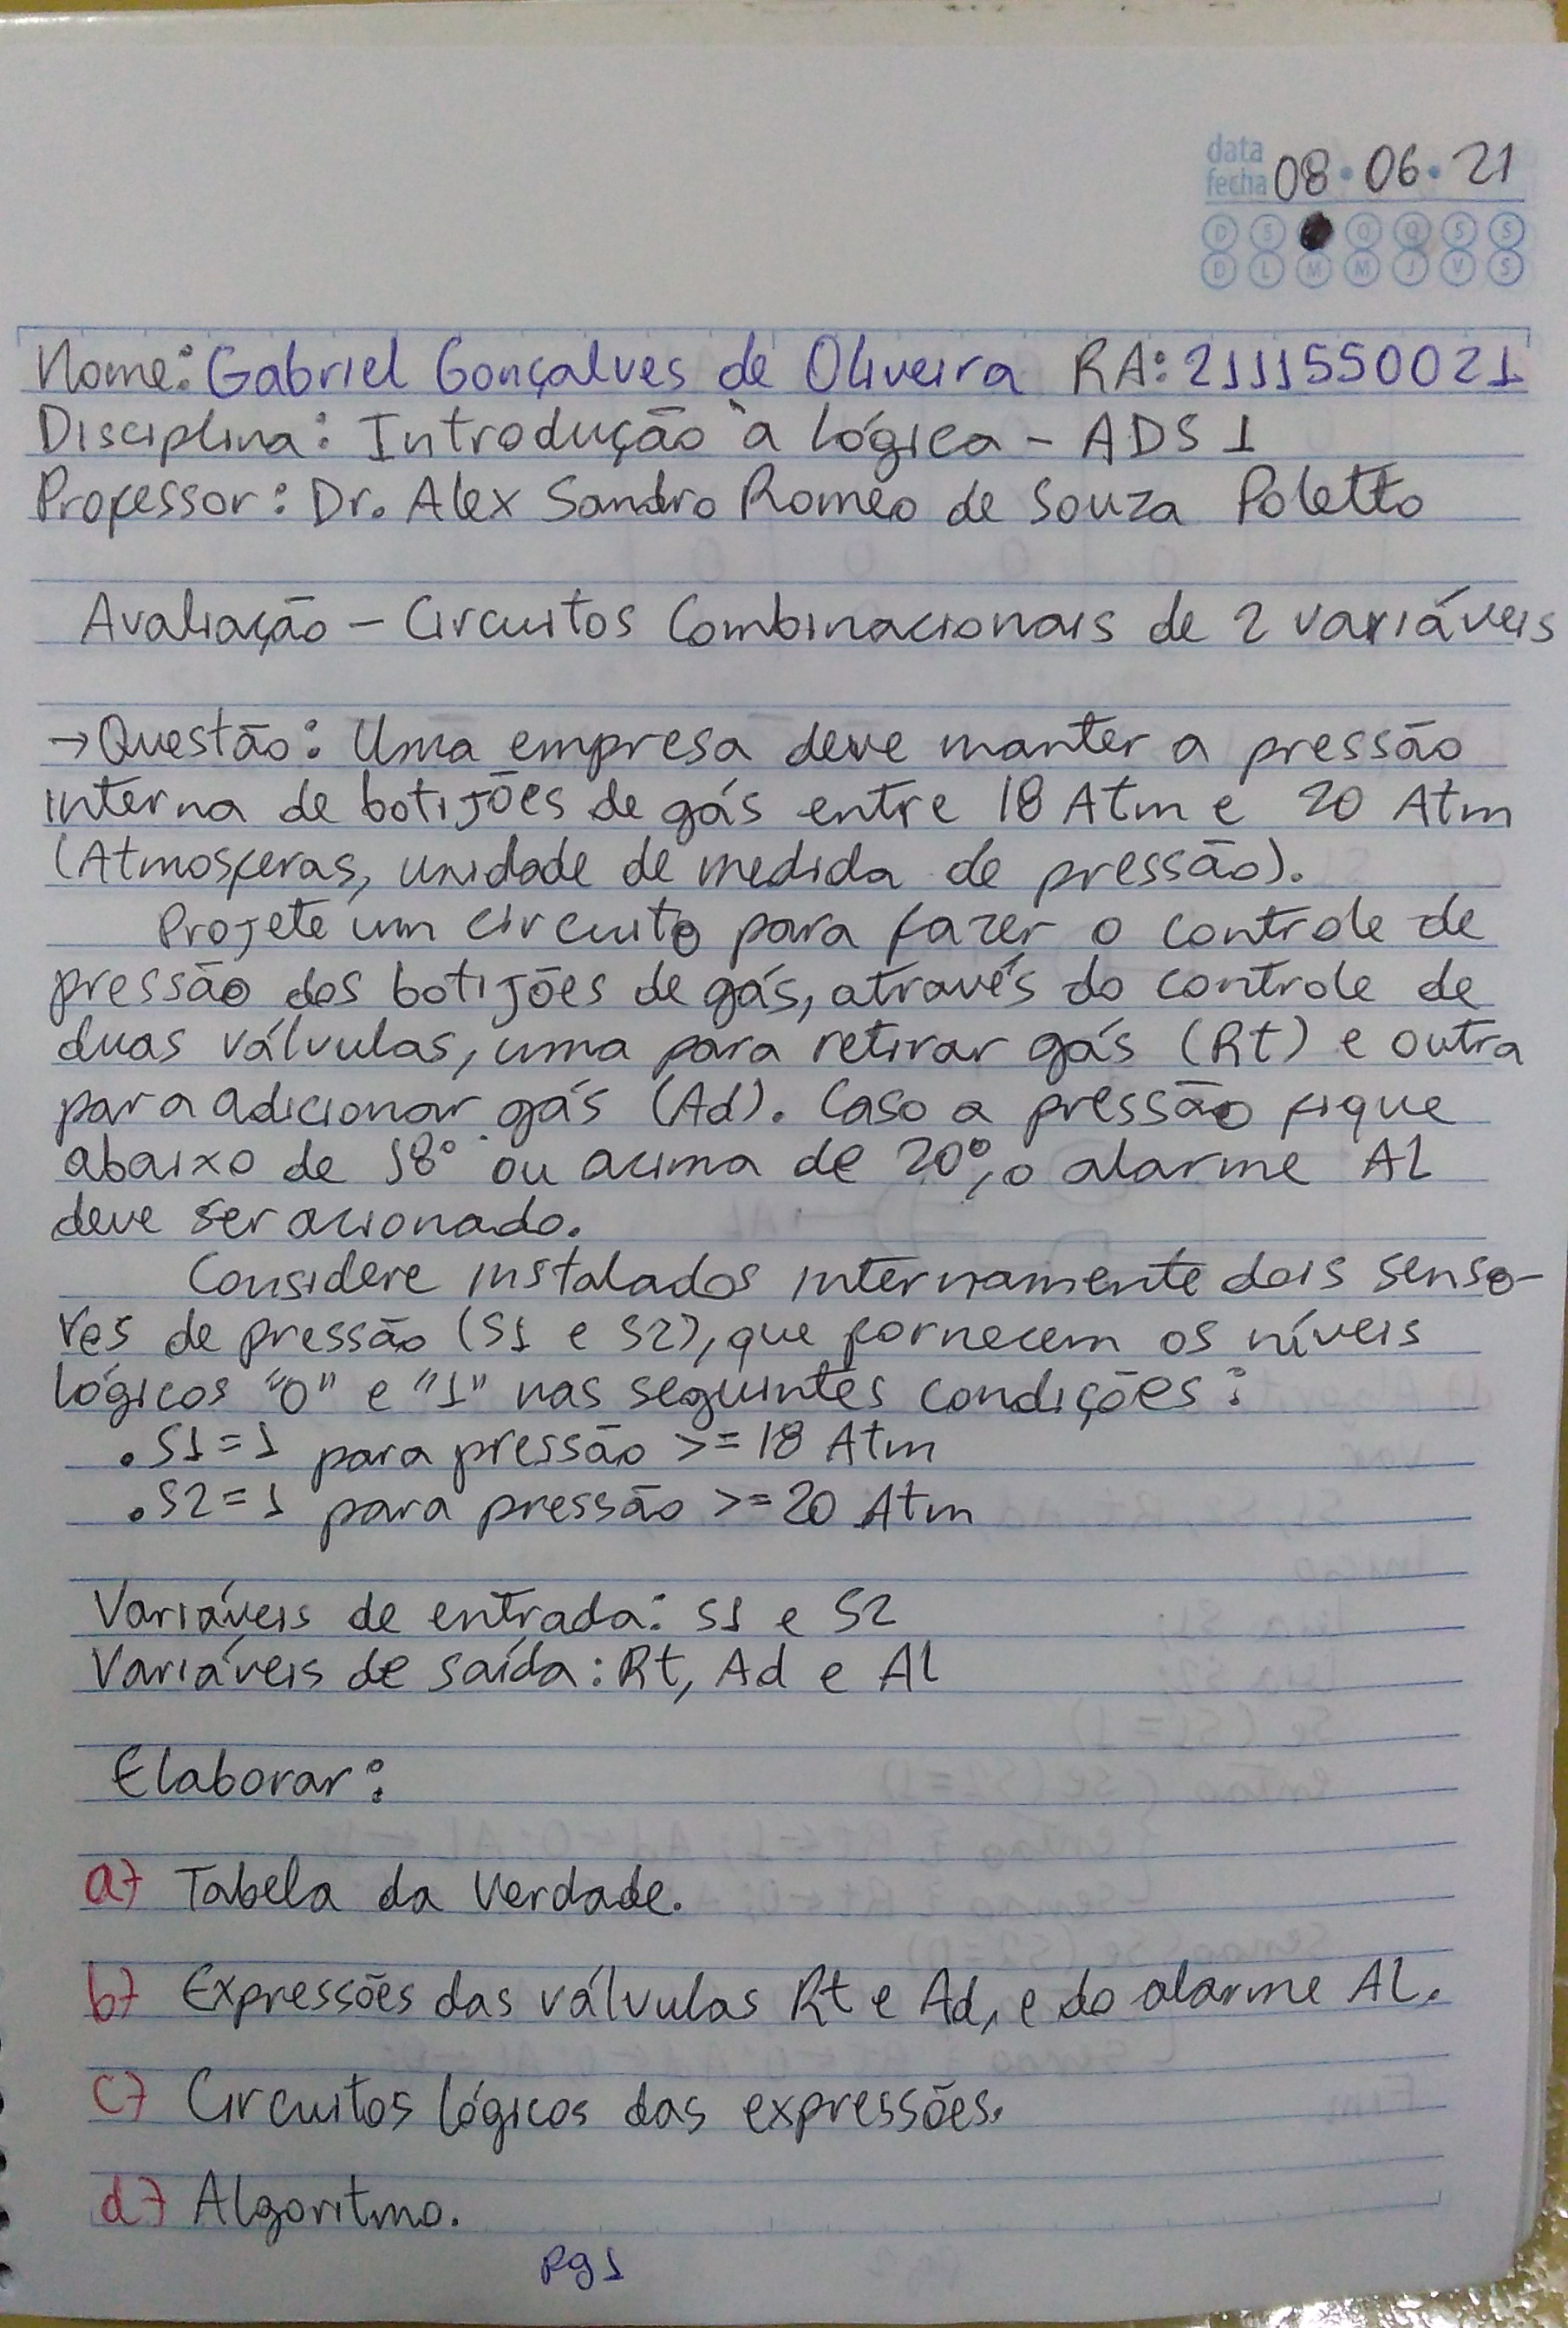 data
fecha 08 • 06 • 21
D S O Q S S
D L M M J V S
Nome: Gabriel Gonçalves de Oliveira RA: 2111550021
Disciplina: Introdução à lógica - ADS 1
Professor: Dr. Alex Sandro Romeo de Souza Poletto
Avaliação - Circuitos Combinacionais de 2 variáveis
→ Questão: Uma empresa deve manter a pressão
interna de botijões de gás entre 18 Atm e 20 Atm
(Atmosferas, unidade de medida de pressão).
Projete um circuito para fazer o controle de
pressão dos botijões de gás, através do controle de
duas válvulas, uma para retirar gás (Rt) e outra
para adicionar gás (Ad). Caso a pressão fique
abaixo de 18° ou acima de 20°, o alarme Al
deve ser acionado.
Considere instalados internamente dois senso-
res de pressão (S1 e S2), que fornecem os níveis
lógicos "0" e "1" nas seguintes condições:
. S1 = 1 para pressão >= 18 Atm
. S2 = 1 para pressão >= 20 Atm
Variáveis de entrada: S1 e S2
Variáveis de saída: Rt, Ad e Al
Elaborar:
a) Tabela da Verdade.
b) Expressões das válvulas Rt e Ad, e do alarme Al.
c) Circuitos lógicos das expressões.
d) Algoritmo.
Pg 1